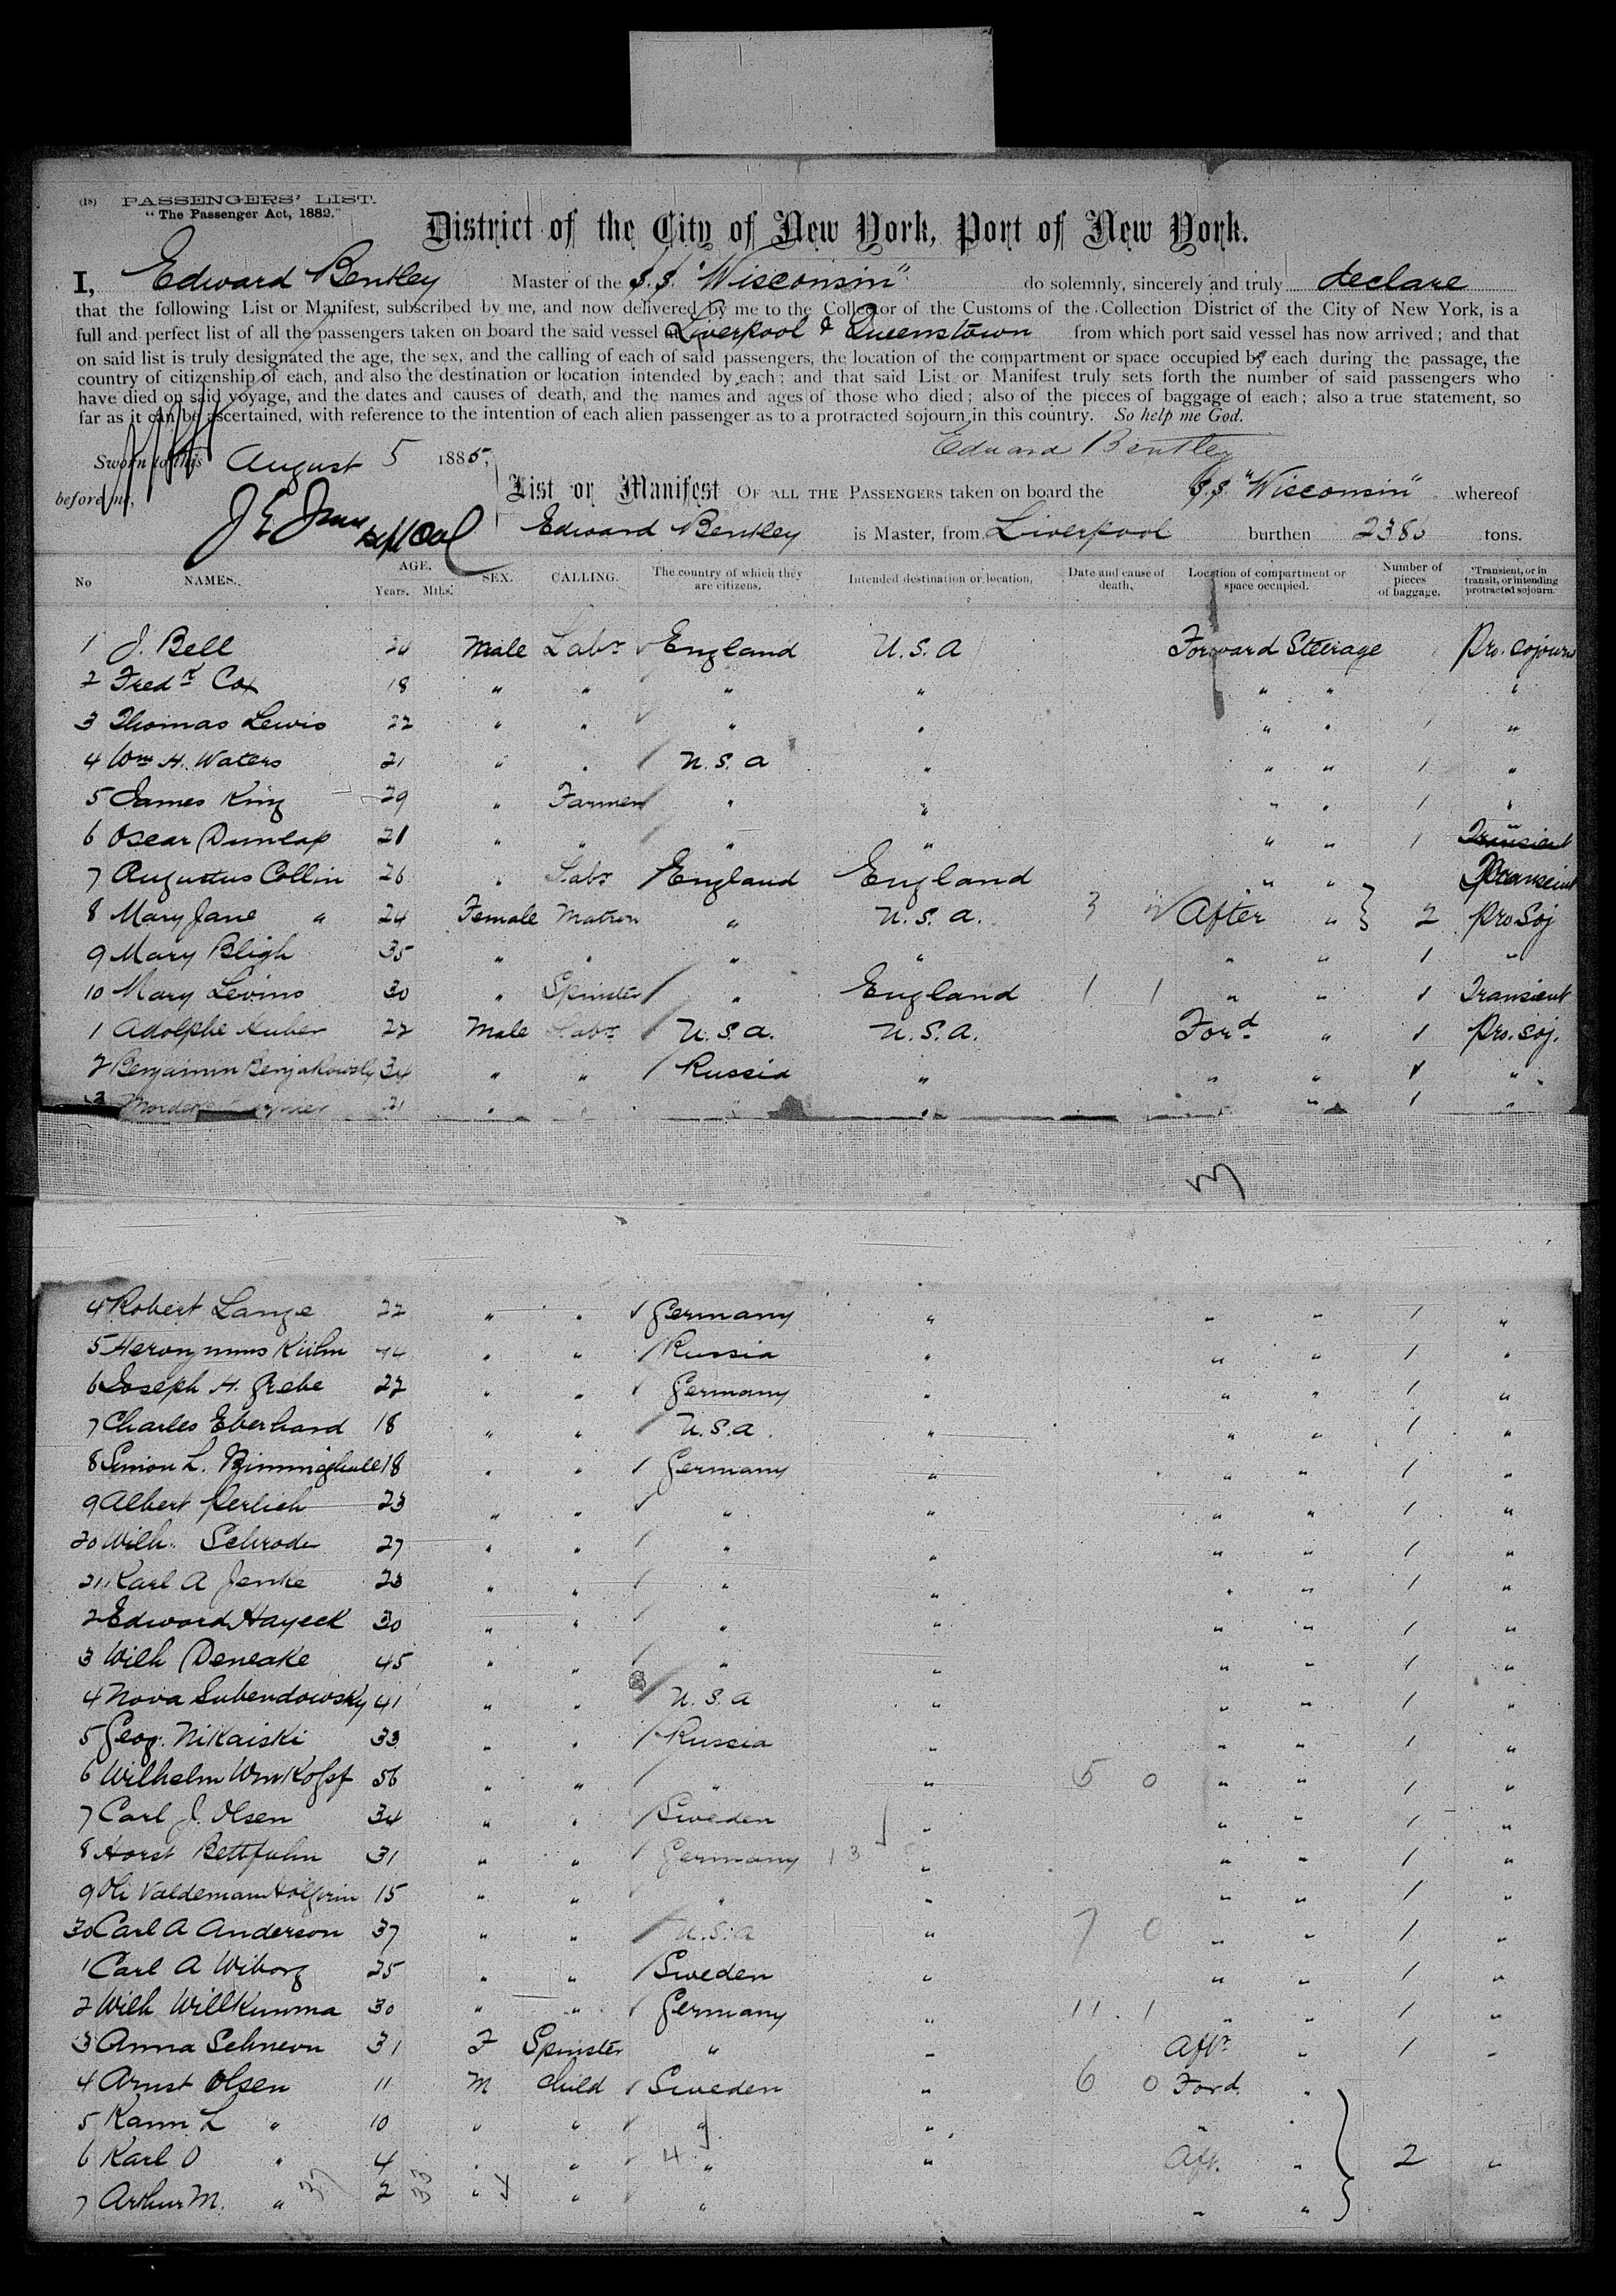 (18) PASSENGERS' LIST.
"The Passenger Act, 1882."
District of the City of New York, Port of New York.
I, Edward Bentley Master of the S.S. "Wisconsin" do solemnly, sincerely and truly declare
that the following List or Manifest, subscribed by me, and now delivered by me to the Collector of the Customs of the Collection District of the City of New York, is a
full and perfect list of all the passengers taken on board the said vessel at Liverpool & Queenstown from which port said vessel has now arrived; and that
on said list is truly designated the age, the sex, and the calling of each of said passengers, the location of the compartment or space occupied by each during the passage, the
country of citizenship of each, and also the destination or location intended by each; and that said List or Manifest truly sets forth the number of said passengers who
have died on said voyage, and the dates and causes of death, and the names and ages of those who died; also of the pieces of baggage of each; also a true statement, so
far as it can be ascertained, with reference to the intention of each alien passenger as to a protracted sojourn in this country. So help me God.
Edward Bentley
Sworn to this August 5 1885,
before me,
List or Manifest OF ALL THE PASSENGERS taken on board the S.S. "Wisconsin" whereof
Edward Bentley is Master, from Liverpool burthen tons.
No NAMES. AGE. Years. Mths. SEX. CALLING. The country of which they are citizens. Intended destination or location, Date and cause of death, Location of compartment or space occupied. Number of pieces of baggage. *Transient, or in transit, or intending protracted sojourn.
1 J. Bell Male Labr England U.S.A Forward Steerage Pro. Sojourn
2 Fredk Cox 18 " " " " " " "
3 Thomas Lewis 22 " " " " " " "
4 Wm H. Waters 21 " " U.S.A " " " 1 "
5 James King 29 " Farmer " " " " 1 "
6 Oscar Dunlap 21 " " " " " " 1 "
7 Augustus Collin 26 " Labr England England " " Transient
8 Mary Jane " 24 Female Matron " U.S.A. 3 After " 2 Pro Soj
9 Mary Bligh 35 " " " " " " 1 "
10 Mary Levins 30 " Spinster " England 1 1 " " 1 Transient
1 Adolphe Huber 22 Male Labr U.S.A. U.S.A. Ford " 1 Pro. Soj.
2 Benjamin Benjakowsky 34 " " Russia " " " 1 "
3 21 " " " " " 1 "
4 Robert Lange 22 " " Germany " " " 1 "
5 Heronymus Kühn " " Russia " " " 1 "
6 Joseph H. Grebe 22 " " Germany " " " 1 "
7 Charles Eberhard 18 " " U.S.A. " " " 1 "
8 Simon L. 18 " " Germany " " " 1 "
9 Albert Perlich 23 " " " " " " 1 "
20 Wilh. Schroder 27 " " " " " " 1 "
21 Karl A Jenke 23 " " " " " " 1 "
2 Edward Hayeck 30 " " " " " " 1 "
3 Wilh Deneake 45 " " " " " " 1 "
4 Nova Lubendowsky 41 " " U.S.A " " " 1 "
5 Geog. Nikaiski 33 " " Russia " " " 1 "
6 Wilhelm 56 " " " " 5 0 " " 1 "
7 Carl J. Olsen 34 " " Sweden " " " 1 "
8 Horst 31 " " Germany 13 " " " 1 "
9 Valdemam 15 " " " " " " 1 "
30 Carl A Anderson 37 " " U.S.A " 7 0 " " 1 "
1 Carl A Wiborg 25 " " Sweden " " " 1 "
2 Wilh Willkumma 30 " " Germany " 11 1 " " 1 "
3 Anna Schneon 31 F Spinster " " Aftr " 1 "
4 Arnst Olsen 11 M Child Sweden " 6 0 Ford. "
5 Kann L " 10 " " " " " "
6 Karl O " 4 " " 4 " " Aft. " 2 "
7 Arthur M. " 37 2 33 " " " " "